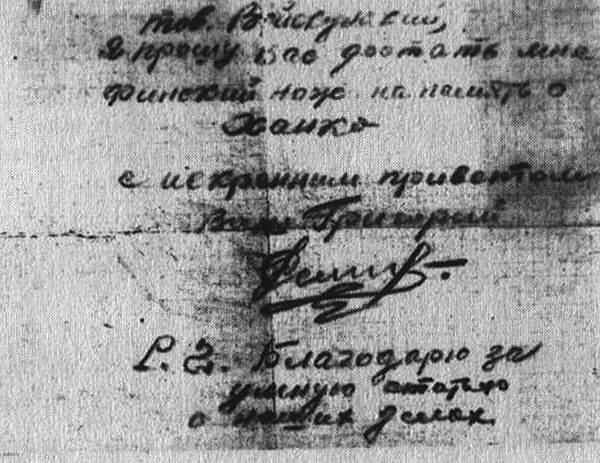 тов. Войскунский,
Я прошу вас достать мне
финский нож на память о
Ханко
с искренним приветом
Ваш Григорий
P. S. Благодарю за
умную статью
о наших делах